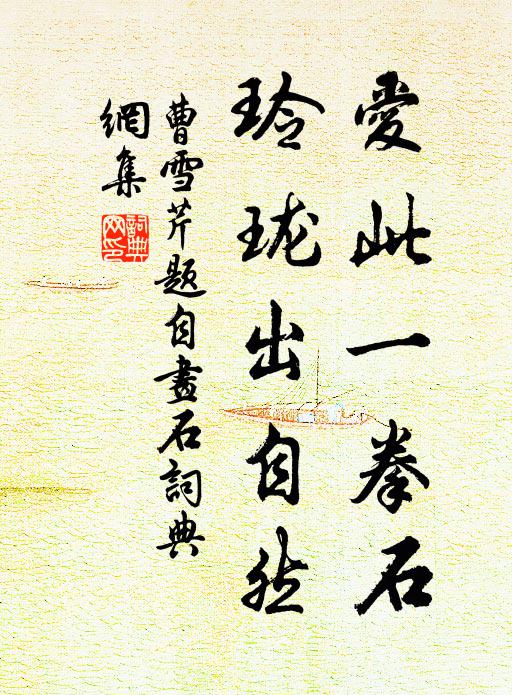 愛此一拳石
玲瓏出自然
曹雪芹題自畫石詞典
網集
詞典網印